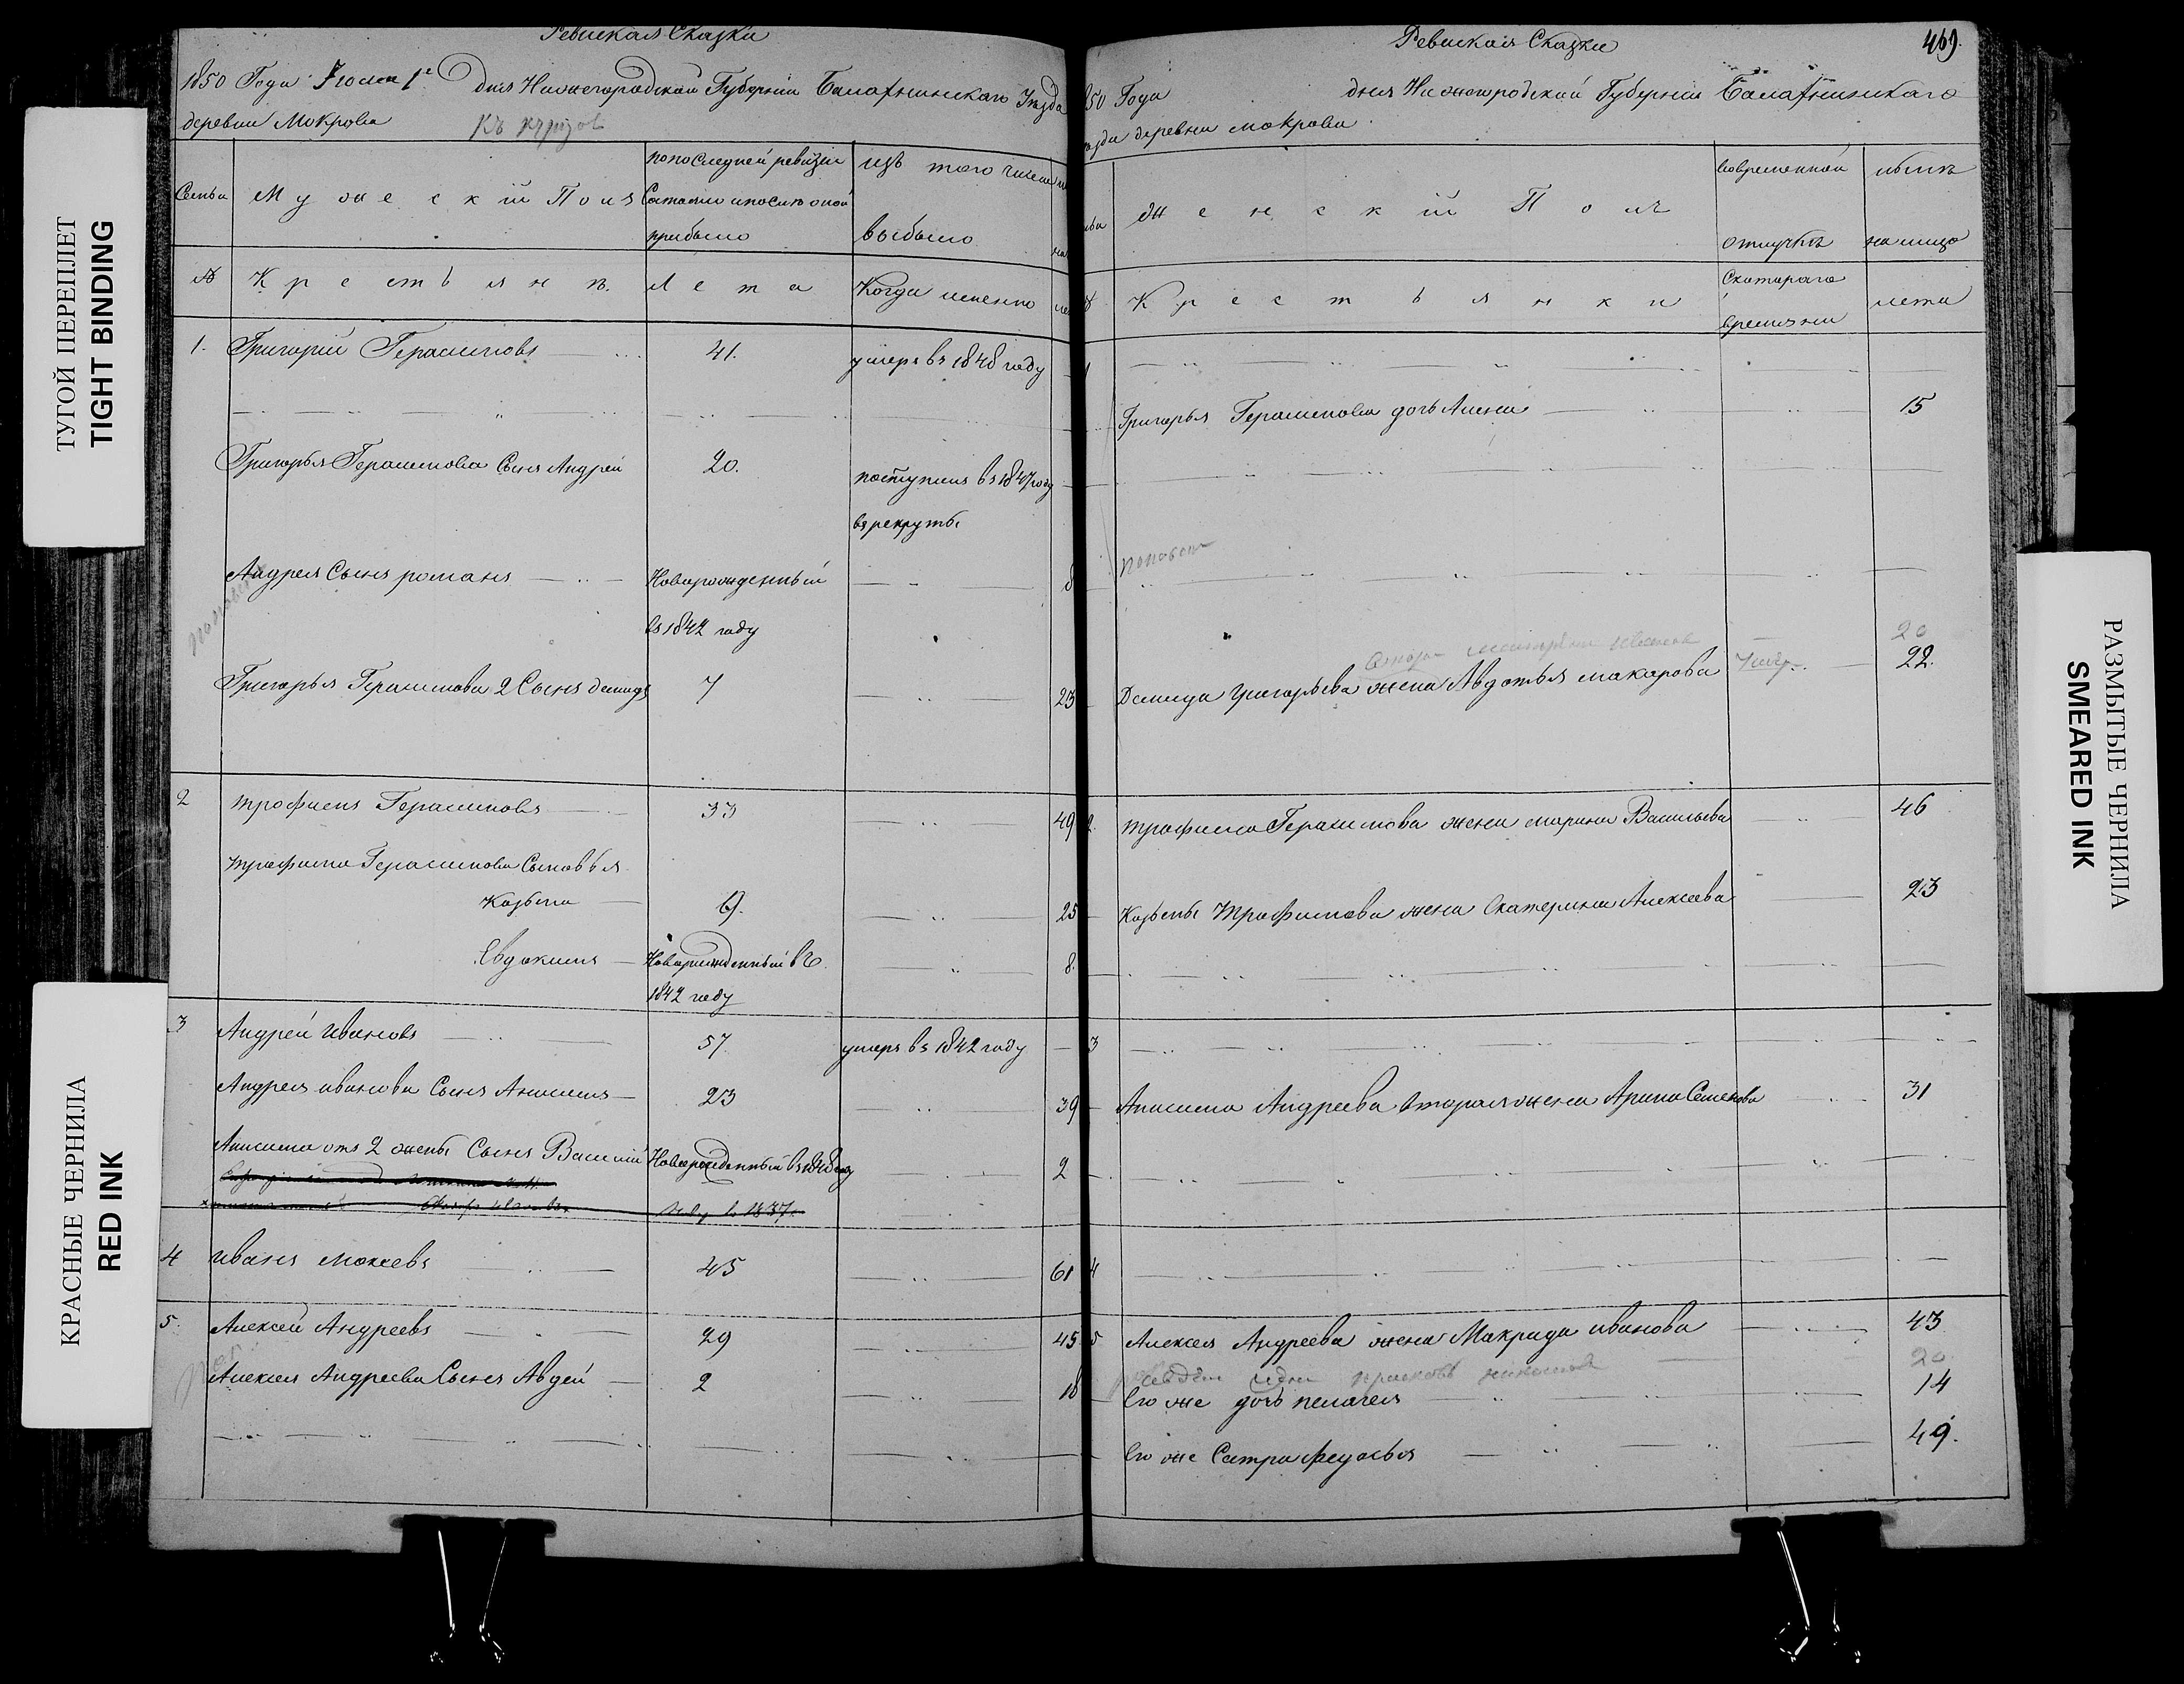 Ревиская Сказка
1850 Года Июля 1е дня Нижегородской Губернiи Балахнинскаго Уезда
деревни Мокрова
Семьи
Мужескiй Полъ
по последней ревизiи
Состояло и после оной
прибыло
изъ того числа
выбыло
№
Крестьянъ.
Лета
Когда именно
1. Григорiй Герасимовъ 41. умеръ въ 1848 году
Григорья Герасимова Сынъ Андрей 20. поступилъ въ 1847 году
въ рекруты
Андрея Сынъ романъ Новорожденный 8
въ 1842 году
Григорья Герасимова 2 Сынъ демидъ 7 23
2 трофимъ Герасимовъ 33 49
трофима Герасимова Сыновья
Козьма 9. 25
Евдокимъ Новорожденный въ 8.
1842 году
3 Андрей Ивановъ 57. умеръ въ 1842 году
Андрея иванова Сынъ Анисимъ 23 39
Анисима отъ 2 жены Сынъ Василий Новорожденный въ 1848 году 2
4 иванъ мокеевъ 45 61
5. Алексей Андреевъ 29 45
Алексея Андреева Сынъ Авдей 2 18
Ревиская Сказка
469.
850 Года дня Нижегородской Губернiи Балахнинскаго
деревни мокрова
женскiй Полъ
во временной
отлучке
налицо
Крестьянки
Скотораго
времяни
лета
1
Григорья Герасимова дочь Алена 15
20
Демида григорьева жена Авдотья макарова умер. 22.
2. трофима Герасимова жена марина Васильева 46
Козьмы трофимова жена Екатерина Алексеева 23
3
Анисима Андреева вторая жена Арина Семенова 31
4
5 Алексея Андреева жена Макрида иванова 43
20
Его же дочь пелагея 14
Его же Сестра федосья 49.
ТУГОЙ ПЕРЕПЛЕТ
TIGHT BINDING
КРАСНЫЕ ЧЕРНИЛА
RED INK
РАЗМЫТЫЕ ЧЕРНИЛА
SMEARED INK